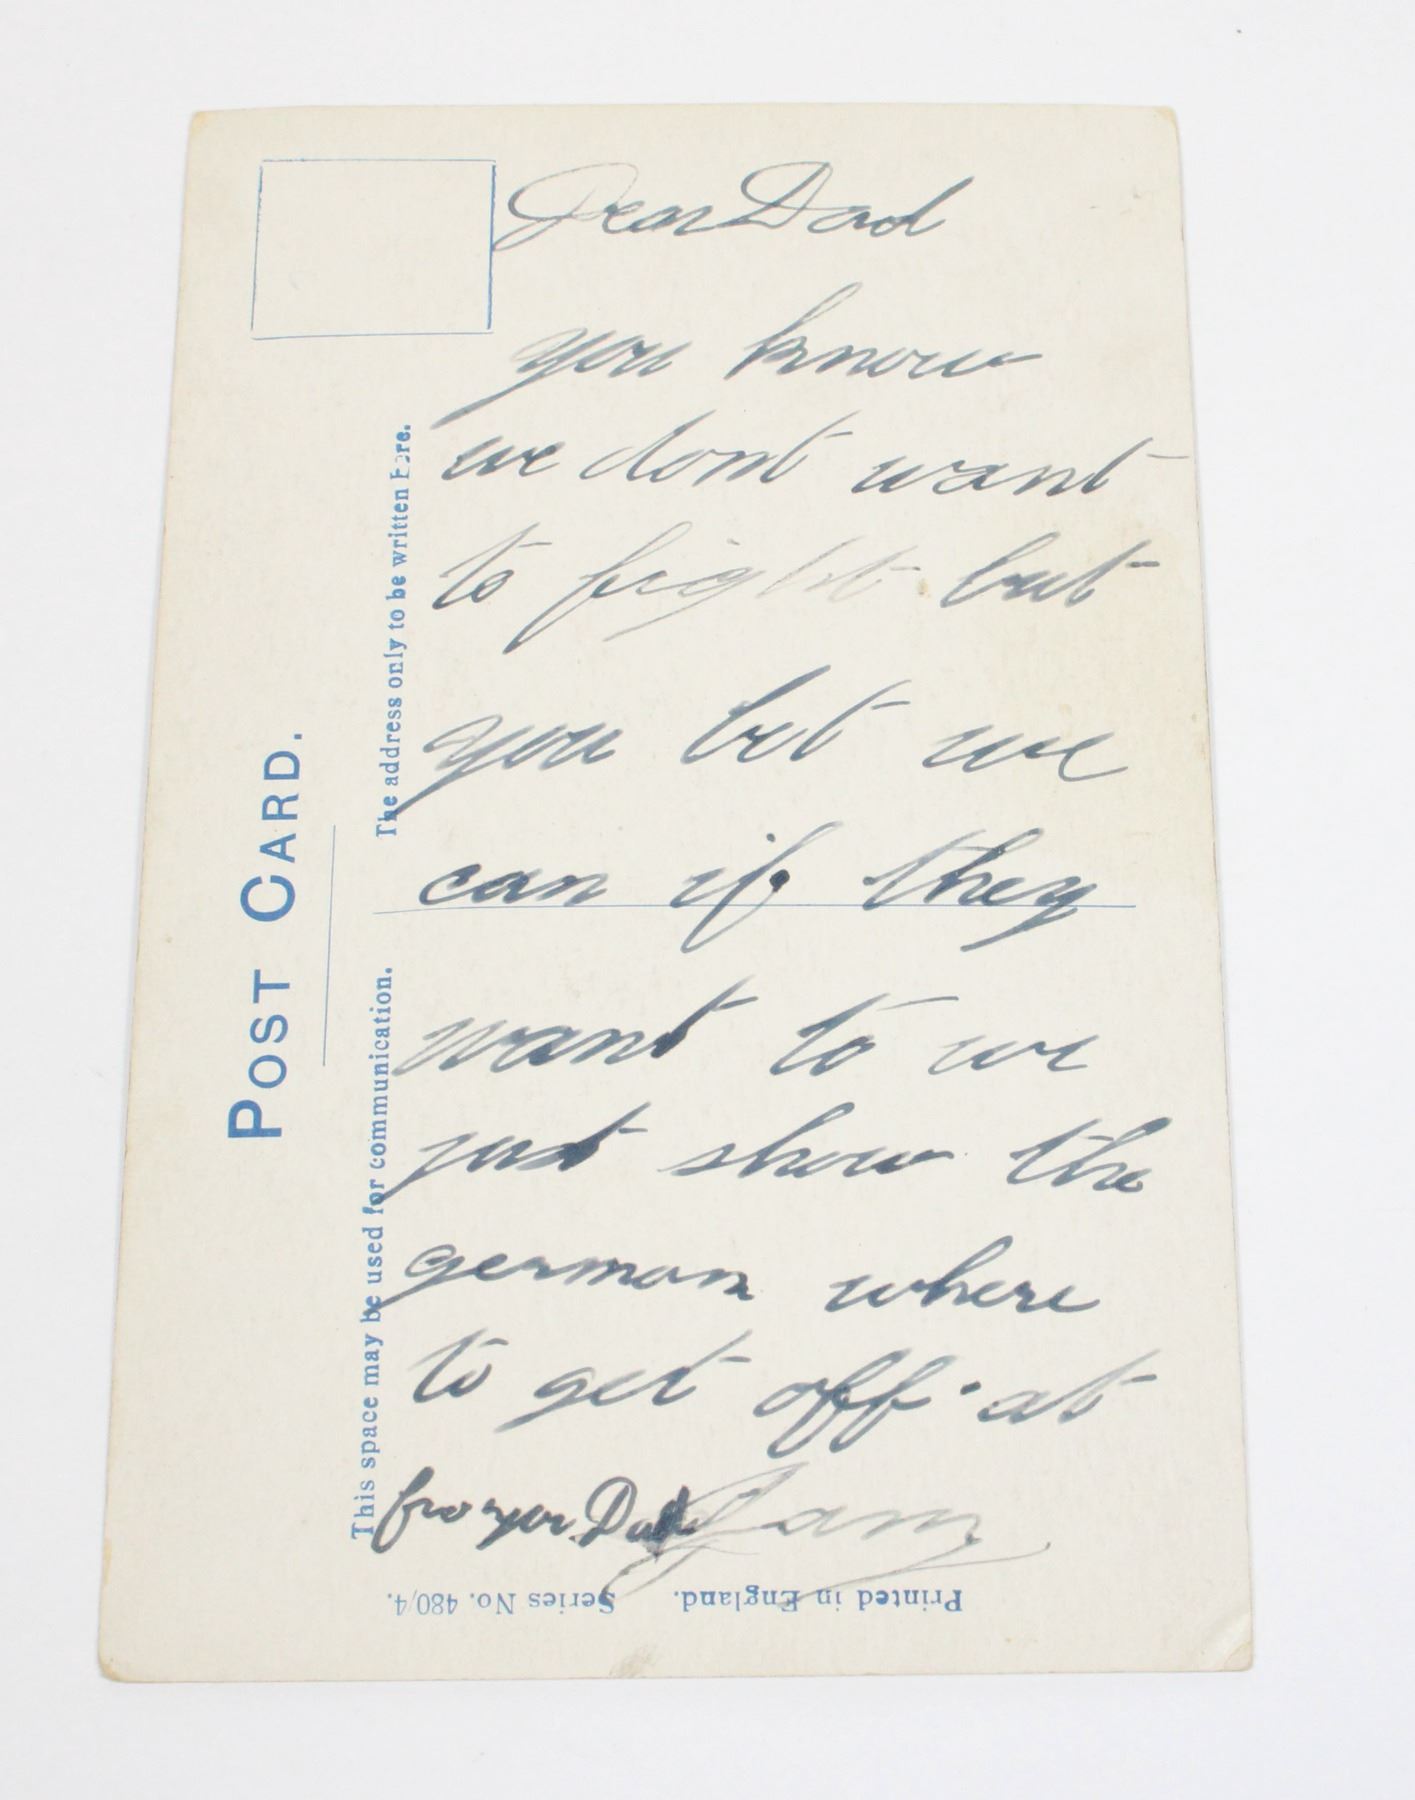 POST CARD.
The address only to be written here.
This space may be used for communication.
Dear Dad
you know
we dont want
to fight but
you bet we
can if they
want to we
just show the
german where
to get off at
fro your Dad
Series No. 480/4. Printed in England.